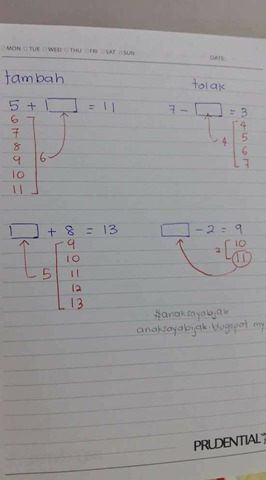 MON TUE WED THU FRI SAT SUN
DATE:
tambah
tolak
5 + = 11
7 - = 3
6
7
8
9
10
11
6
4
5
6
7
4
+ 8 = 13
- 2 = 9
9
10
11
12
13
5
10
11
2
#anaksayabijak
anaksayabijak.blogspot.my
PRUDENTIAL